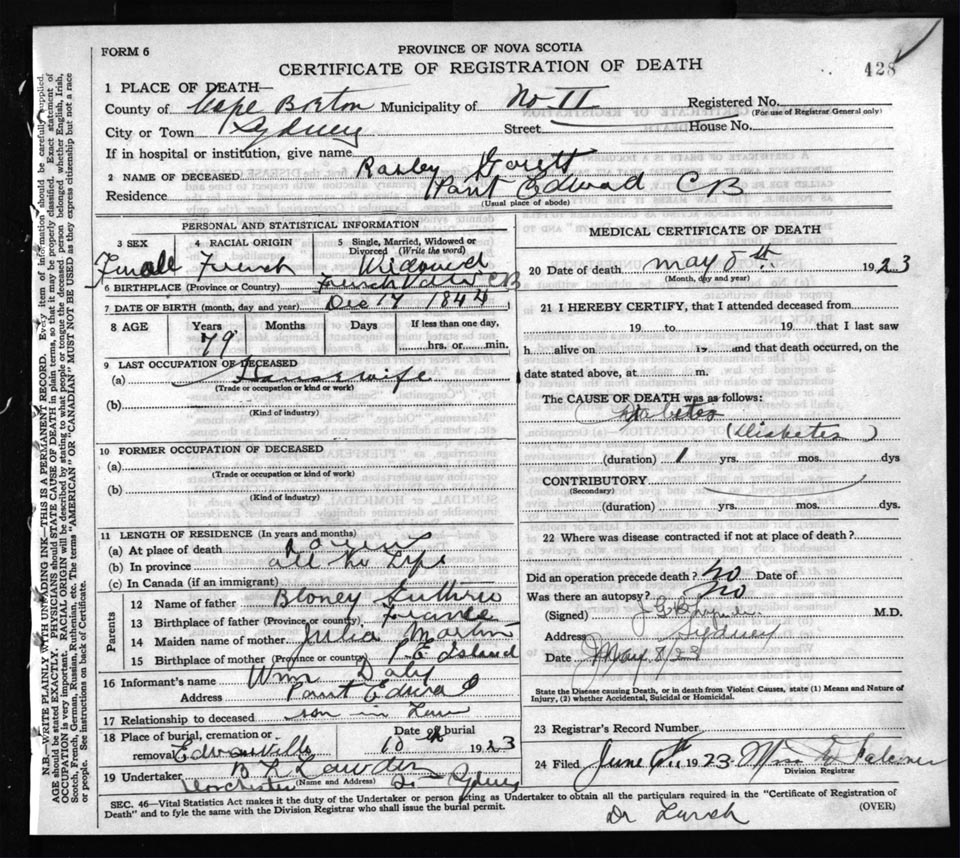 FORM 6
PROVINCE OF NOVA SCOTIA
CERTIFICATE OF REGISTRATION OF DEATH
428
1 PLACE OF DEATH—
County of Cape Breton Municipality of No 11 Registered No.
(For use of Registrar General only)
City or Town Sydney Street House No.
If in hospital or institution, give name
2 NAME OF DECEASED
Residence Point Edward CB
(Usual place of abode)
PERSONAL AND STATISTICAL INFORMATION
3 SEX 4 RACIAL ORIGIN 5 Single, Married, Widowed or Divorced (Write the word)
Female French Widowed
6 BIRTHPLACE (Province or Country) French CB
7 DATE OF BIRTH (month, day and year) Dec 17 1844
8 AGE Years Months Days If less than one day,
79 hrs. or min.
9 LAST OCCUPATION OF DECEASED
(a) Housewife
(Trade or occupation or kind of work)
(b)
(Kind of industry)
10 FORMER OCCUPATION OF DECEASED
(a)
(Trade or occupation or kind of work)
(b)
(Kind of industry)
11 LENGTH OF RESIDENCE (In years and months)
(a) At place of death
(b) In province all her Life
(c) In Canada (if an immigrant)
Parents
12 Name of father
13 Birthplace of father (Province or country) France
14 Maiden name of mother Julia Martin
15 Birthplace of mother (Province or country) P. E Island
16 Informant's name Wm Daly
Address Point Edward
17 Relationship to deceased son in Law
18 Place of burial, cremation or removal Edwardsville Date of burial 10th 1923
19 Undertaker
(Name and Address)
Dorchester St Sydney
MEDICAL CERTIFICATE OF DEATH
20 Date of death May 8th 1923
(Month, day and year)
21 I HEREBY CERTIFY, that I attended deceased from
19 to 19 that I last saw
h alive on 19 and that death occurred, on the
date stated above, at m.
The CAUSE OF DEATH was as follows:
Diabetes
(Diabetes)
(duration) 1 yrs. mos. dys
CONTRIBUTORY
(Secondary)
(duration) yrs. mos. dys.
22 Where was disease contracted if not at place of death?
Did an operation precede death? No Date of
Was there an autopsy? No
(Signed) M.D.
Address Sydney
Date May 8/23
State the Disease causing Death, or in death from Violent Causes, state (1) Means and Nature of
Injury, (2) whether Accidental, Suicidal or Homicidal.
23 Registrar's Record Number
24 Filed June 6th 1923
Division Registrar
SEC. 46—Vital Statistics Act makes it the duty of the Undertaker or person acting as Undertaker to obtain all the particulars required in the "Certificate of Registration of
Death" and to fyle the same with the Division Registrar who shall issue the burial permit. (OVER)
N.B.—WRITE PLAINLY WITH UNFADING INK—THIS IS A PERMANENT RECORD. Every item of information should be carefully supplied.
AGE should be stated EXACTLY. PHYSICIANS should STATE CAUSE OF DEATH in plain terms, so that it may be properly classified. Exact statement of
OCCUPATION is very important. RACIAL ORIGIN will be described by stating to what people or tongue the deceased person belonged whether English, Irish,
Scotch, French, German, Russian, Ruthenian, etc. The terms "AMERICAN" OR "CANADIAN" MUST NOT BE USED as they express citizenship but not a race
or people. See instructions on back of Certificate.